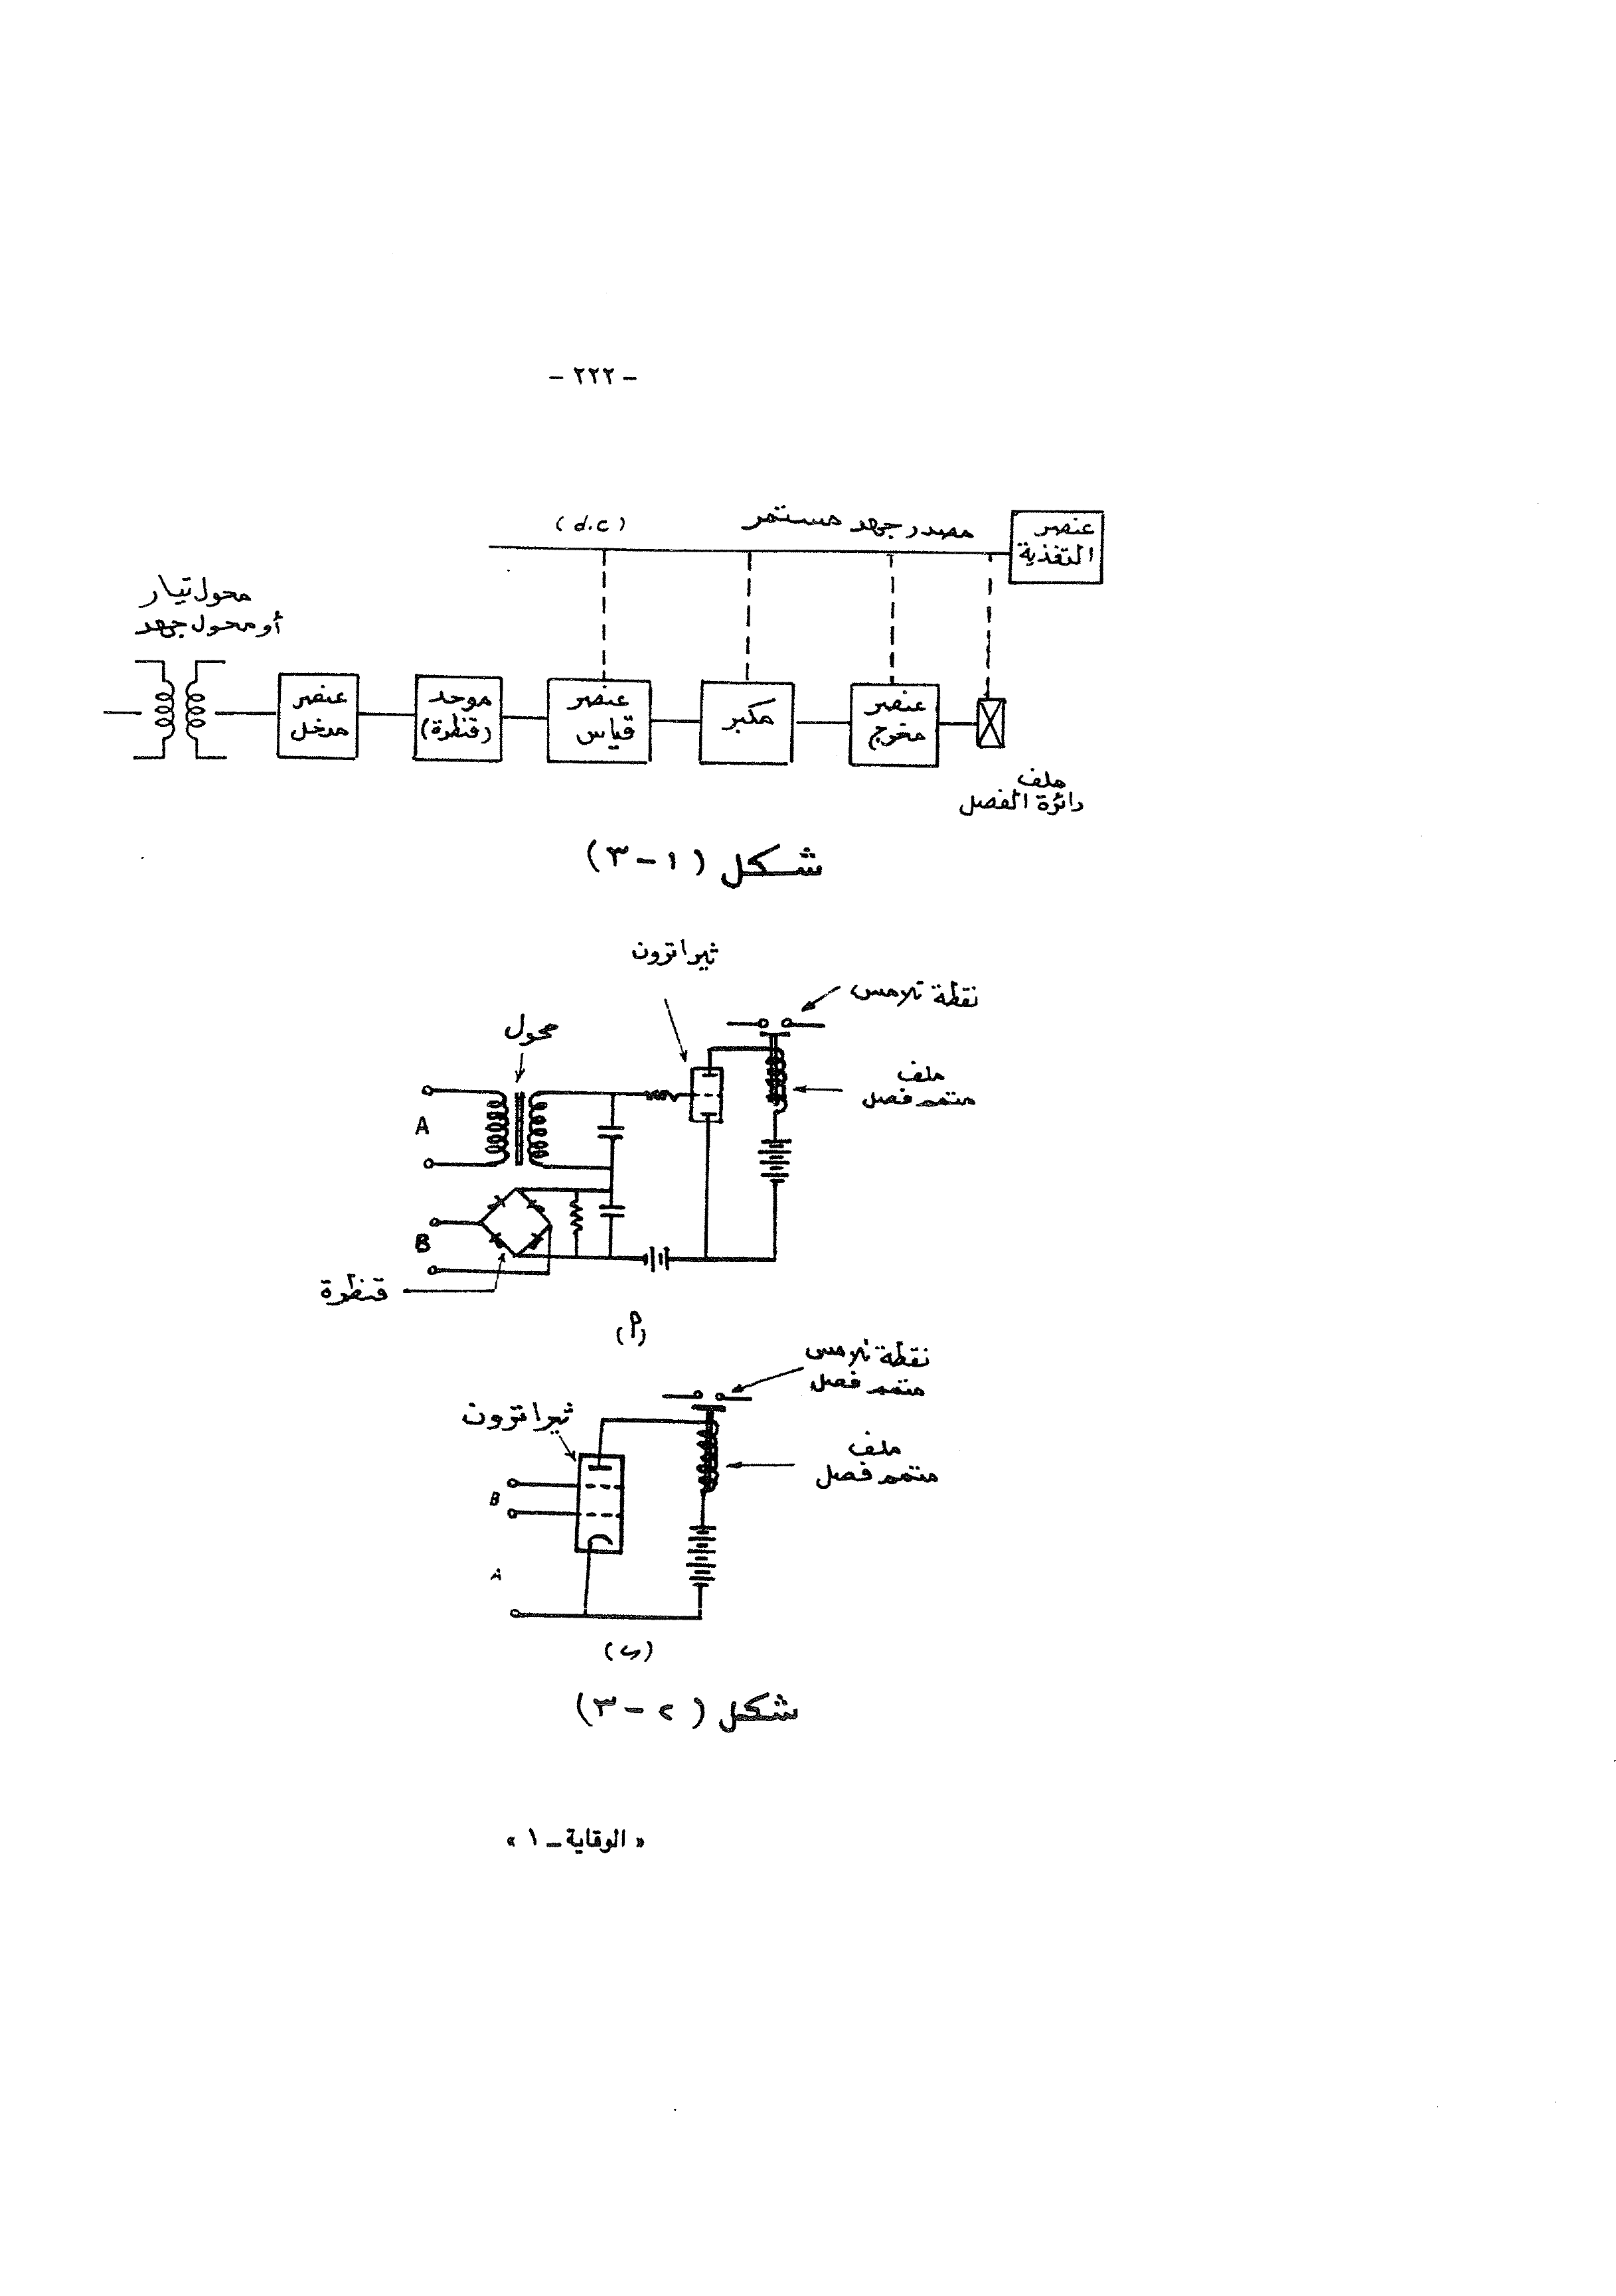 - ٢٢٢ -
عنصر
التغذية
مصدر جهد مستمر
(d.c)
محول تيار
أو محول جهد
عنصر
مدخل
موحد
(قنطرة)
عنصر
قياس
مكبر
عنصر
مخرج
ملف
دائرة الفصل
شكل (١-٣)
ثيراترون
نقطة تلامس
محول
ملف
متمم فصل
A
B
قنطرة
(أ)
نقطة تلامس
متمم فصل
ثيراترون
ملف
متمم فصل
B
A
(ب)
شكل (٢-٣)
« الوقاية ـ ١ »